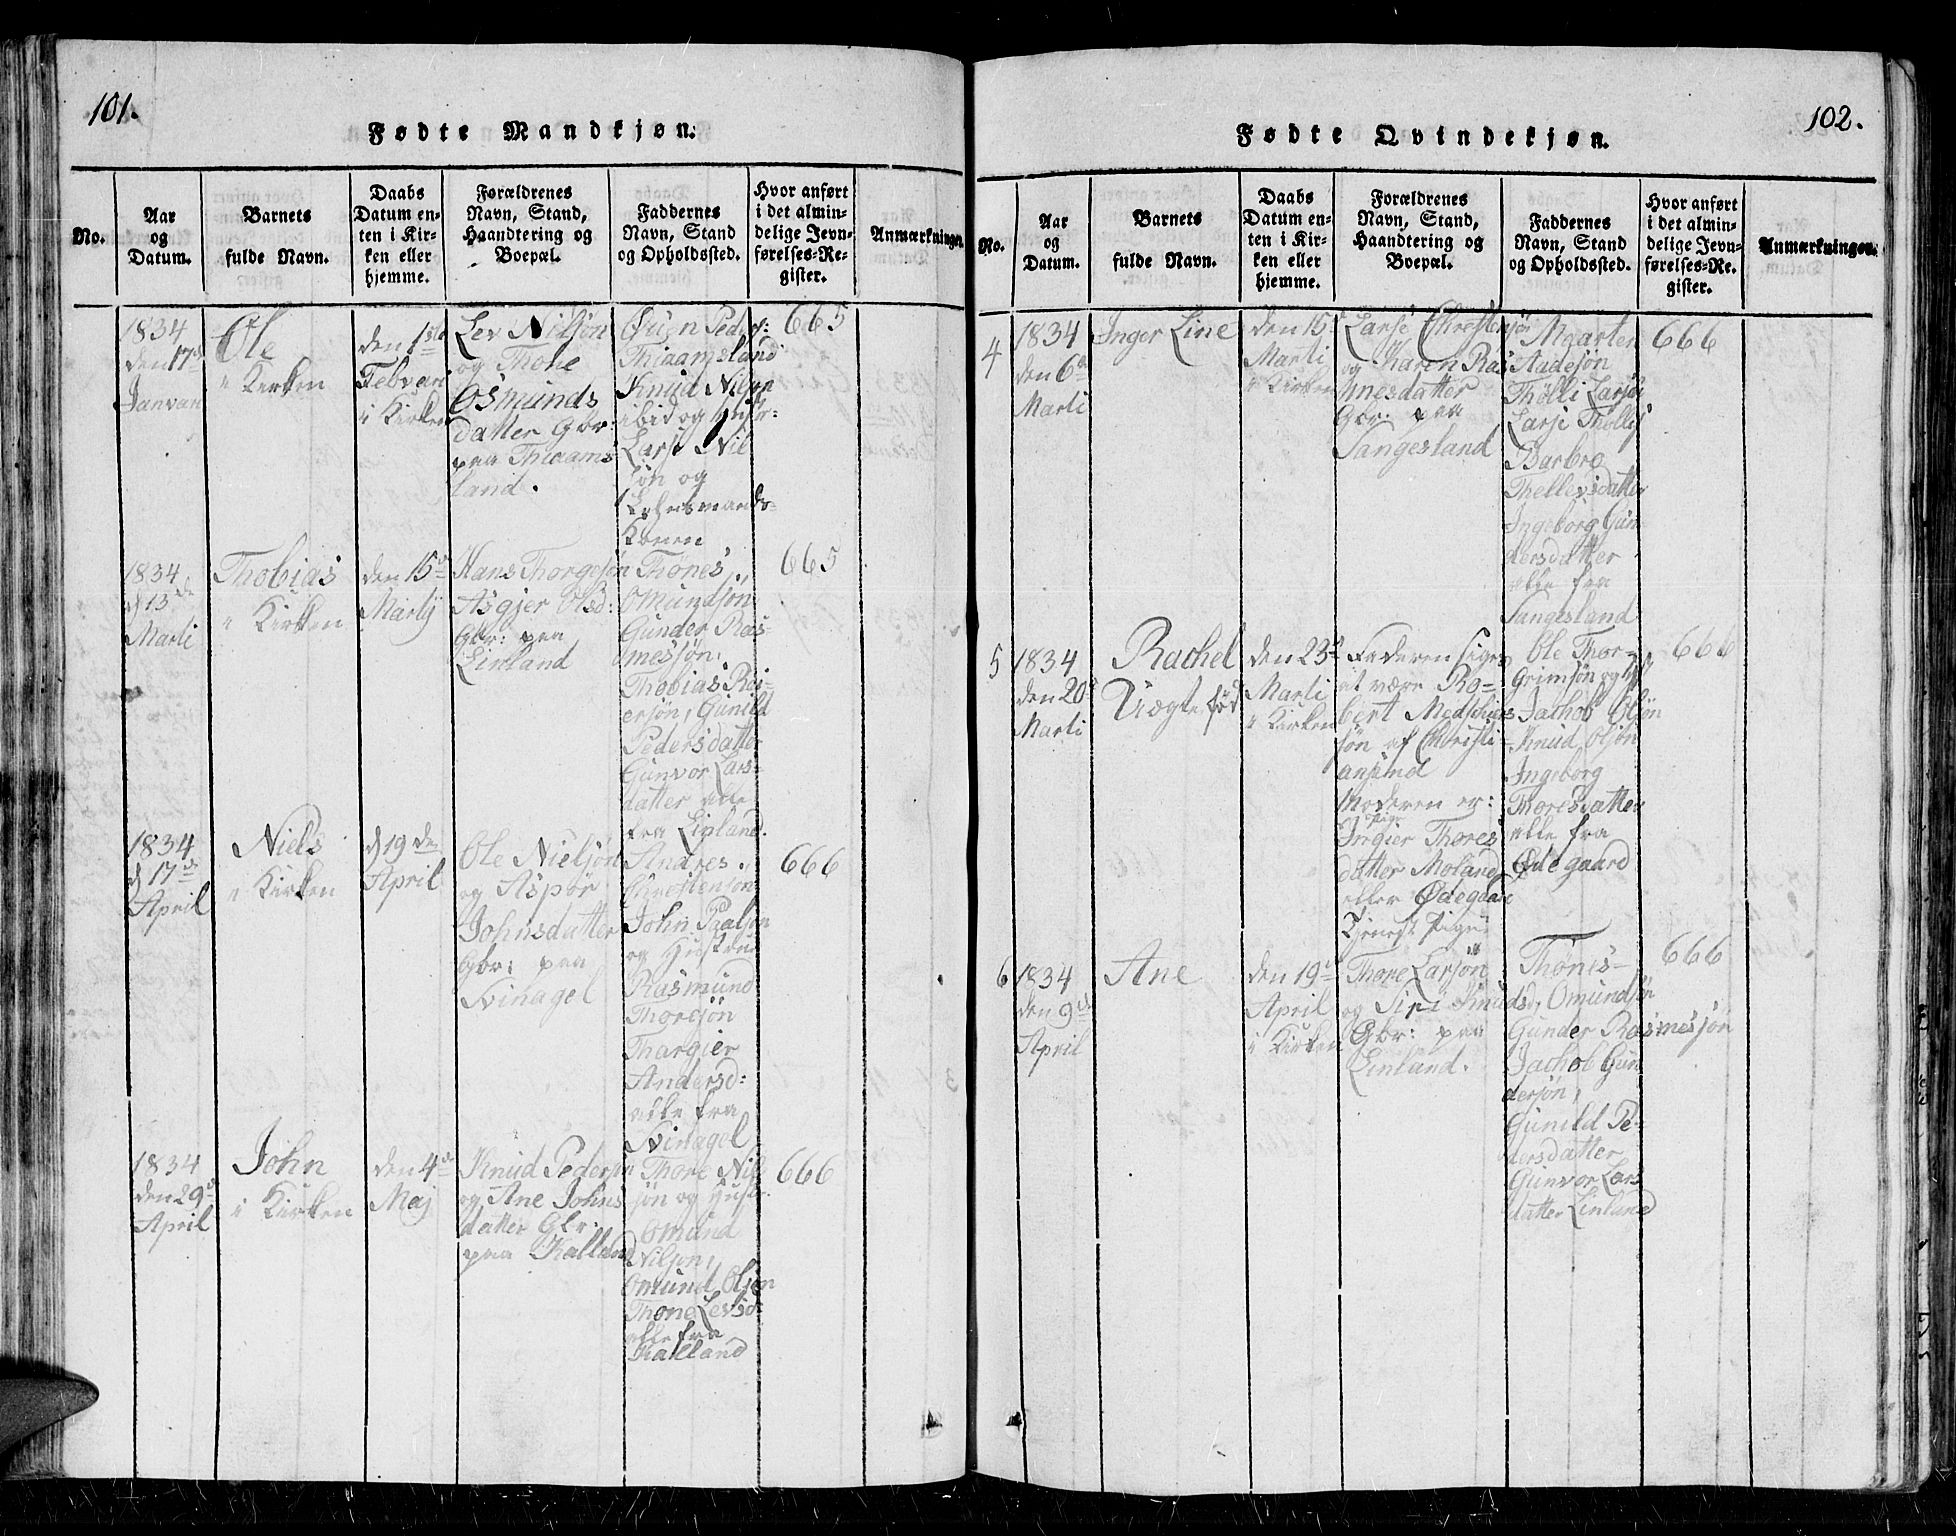 101.
Fødte Mandkjøn.
No.
Aar
og
Datum.
Barnets
fulde Navn.
Daabs
Datum en-
ten i Kir-
ken eller
hjemme.
Forældrenes
Navn, Stand,
Haandtering og
Boepæl.
Faddernes
Navn, Stand
og Opholdssted.
Hvor anført
i det almin-
delige Jevn-
førelses-Re-
gister.
Anmærkninger.
1834
den 17d
Janvari
Ole
i Kirken
den 1ste
Febvari
i Kirken
Lev Nilsjøn
og Thone
Osmunds
datter Gbr:
paa Thiaams
land.
Peders:
Thiaamsland
Knud Nilsøn
ibid og Hustr:
Larse Nil
søn og
Lehnsmands-
Konen
665
1834
d 13de
Marti
Thobias
i Kirken
den 15d
Martij
Hans Thorgesøn
Asgjer Olsd:
Gbr: paa
Einland
Thønes
Omundsøn
Gunder Ras-
messøn,
Thobias Rei-
ersøn, Gunild
Pedersdatter
Gunvor Lars-
datter alle
fra Einland.
665
1834
d 17de
April
Niels
i Kirken
d 19de
April
Ole Nielsjøn
og Aspør
Johnsdatter
Gbr: paa
Svinagel
Andres
Chrestensøn
John Paalsøn
og Hustrue
Rasmund
Thoresøn
Thargier
Andersd:
alle fra
Svinagel
666
1834
den 29d
April
John
i Kirken
den 4de
Maj
Knud Pedersøn
og Ane Johns
datter Gbr:
paa Kalland
Thore Nil
søn og Hustr.
Omund
Nilsøn,
Omund Olsøn
Thone Levsd:
alle fra
Kalland
666
102.
Fødte Qvindekjøn.
No.
Aar
og
Datum.
Barnets
fulde Navn.
Daabs
Datum en-
ten i Kir-
ken eller
hjemme.
Forældrenes
Navn, Stand,
Haandtering og
Boepæl.
Faddernes
Navn, Stand
og Opholdssted.
Hvor anført
i det almin-
delige Jevn-
førelses-Re-
gister.
Anmærkninger.
4
1834
den 6d
Marti
Inger Line
den 15d
Marti
i Kirken
Larse Chrestensøn
og Karen Ras
mesdatter
Gbr: paa
Sangesland
Maarten
Aadesøn
Thølli Larsøn
Larse Thøllij
Barbro
Thellevsdatter
Ingeborg Gun
dersdatter
alle fra
Sangesland
666
5
1834
den 20d
Marti
Rachel
Uægtefød
den 23d
Marti
i Kirken
Faderen siges
at være Ro-
bert
søn af Christi-
ansund
Moderen er:
Pige
Ingier Thores
datter Moland
eller Ødegaard
Tjenest Pige
Ole Thor-
Grimsøn og
Jachob Olsøn
Knud Olsøn
Ingeborg
Thoresdatter
alle fra
Ødegaard
666
6
1834
den 9de
April
Ane
den 19d
April
i Kirken
Thore Larsøn
og Siri Knudsd,
Gbr: paa
Einland.
Thønes-
Omundsøn
Gunder Rasmessøn
Jachob Gun
dersøn,
Gunild Pe-
dersdatter
Gunvor Lars
datter Einland
666